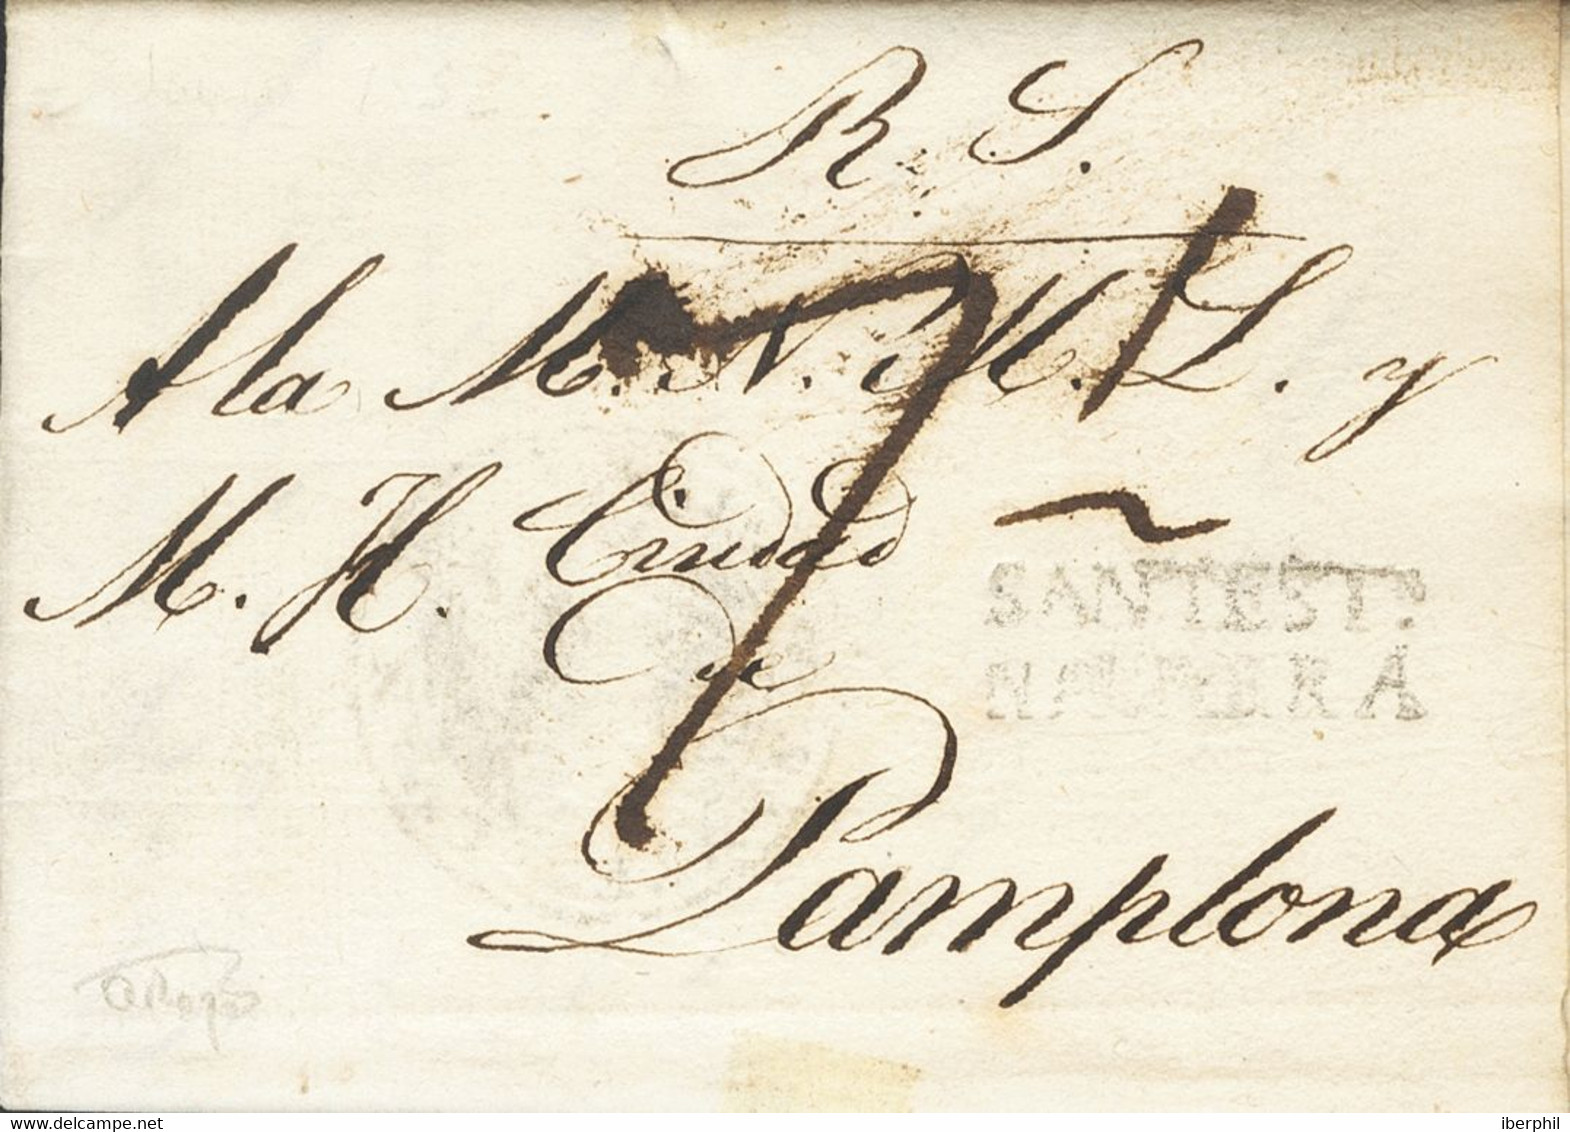 R. S.
A la M. N. M. L. y
M. H. Ciudad
de
Pamplona
7
SANTEST.
NAVARRA
iberphil